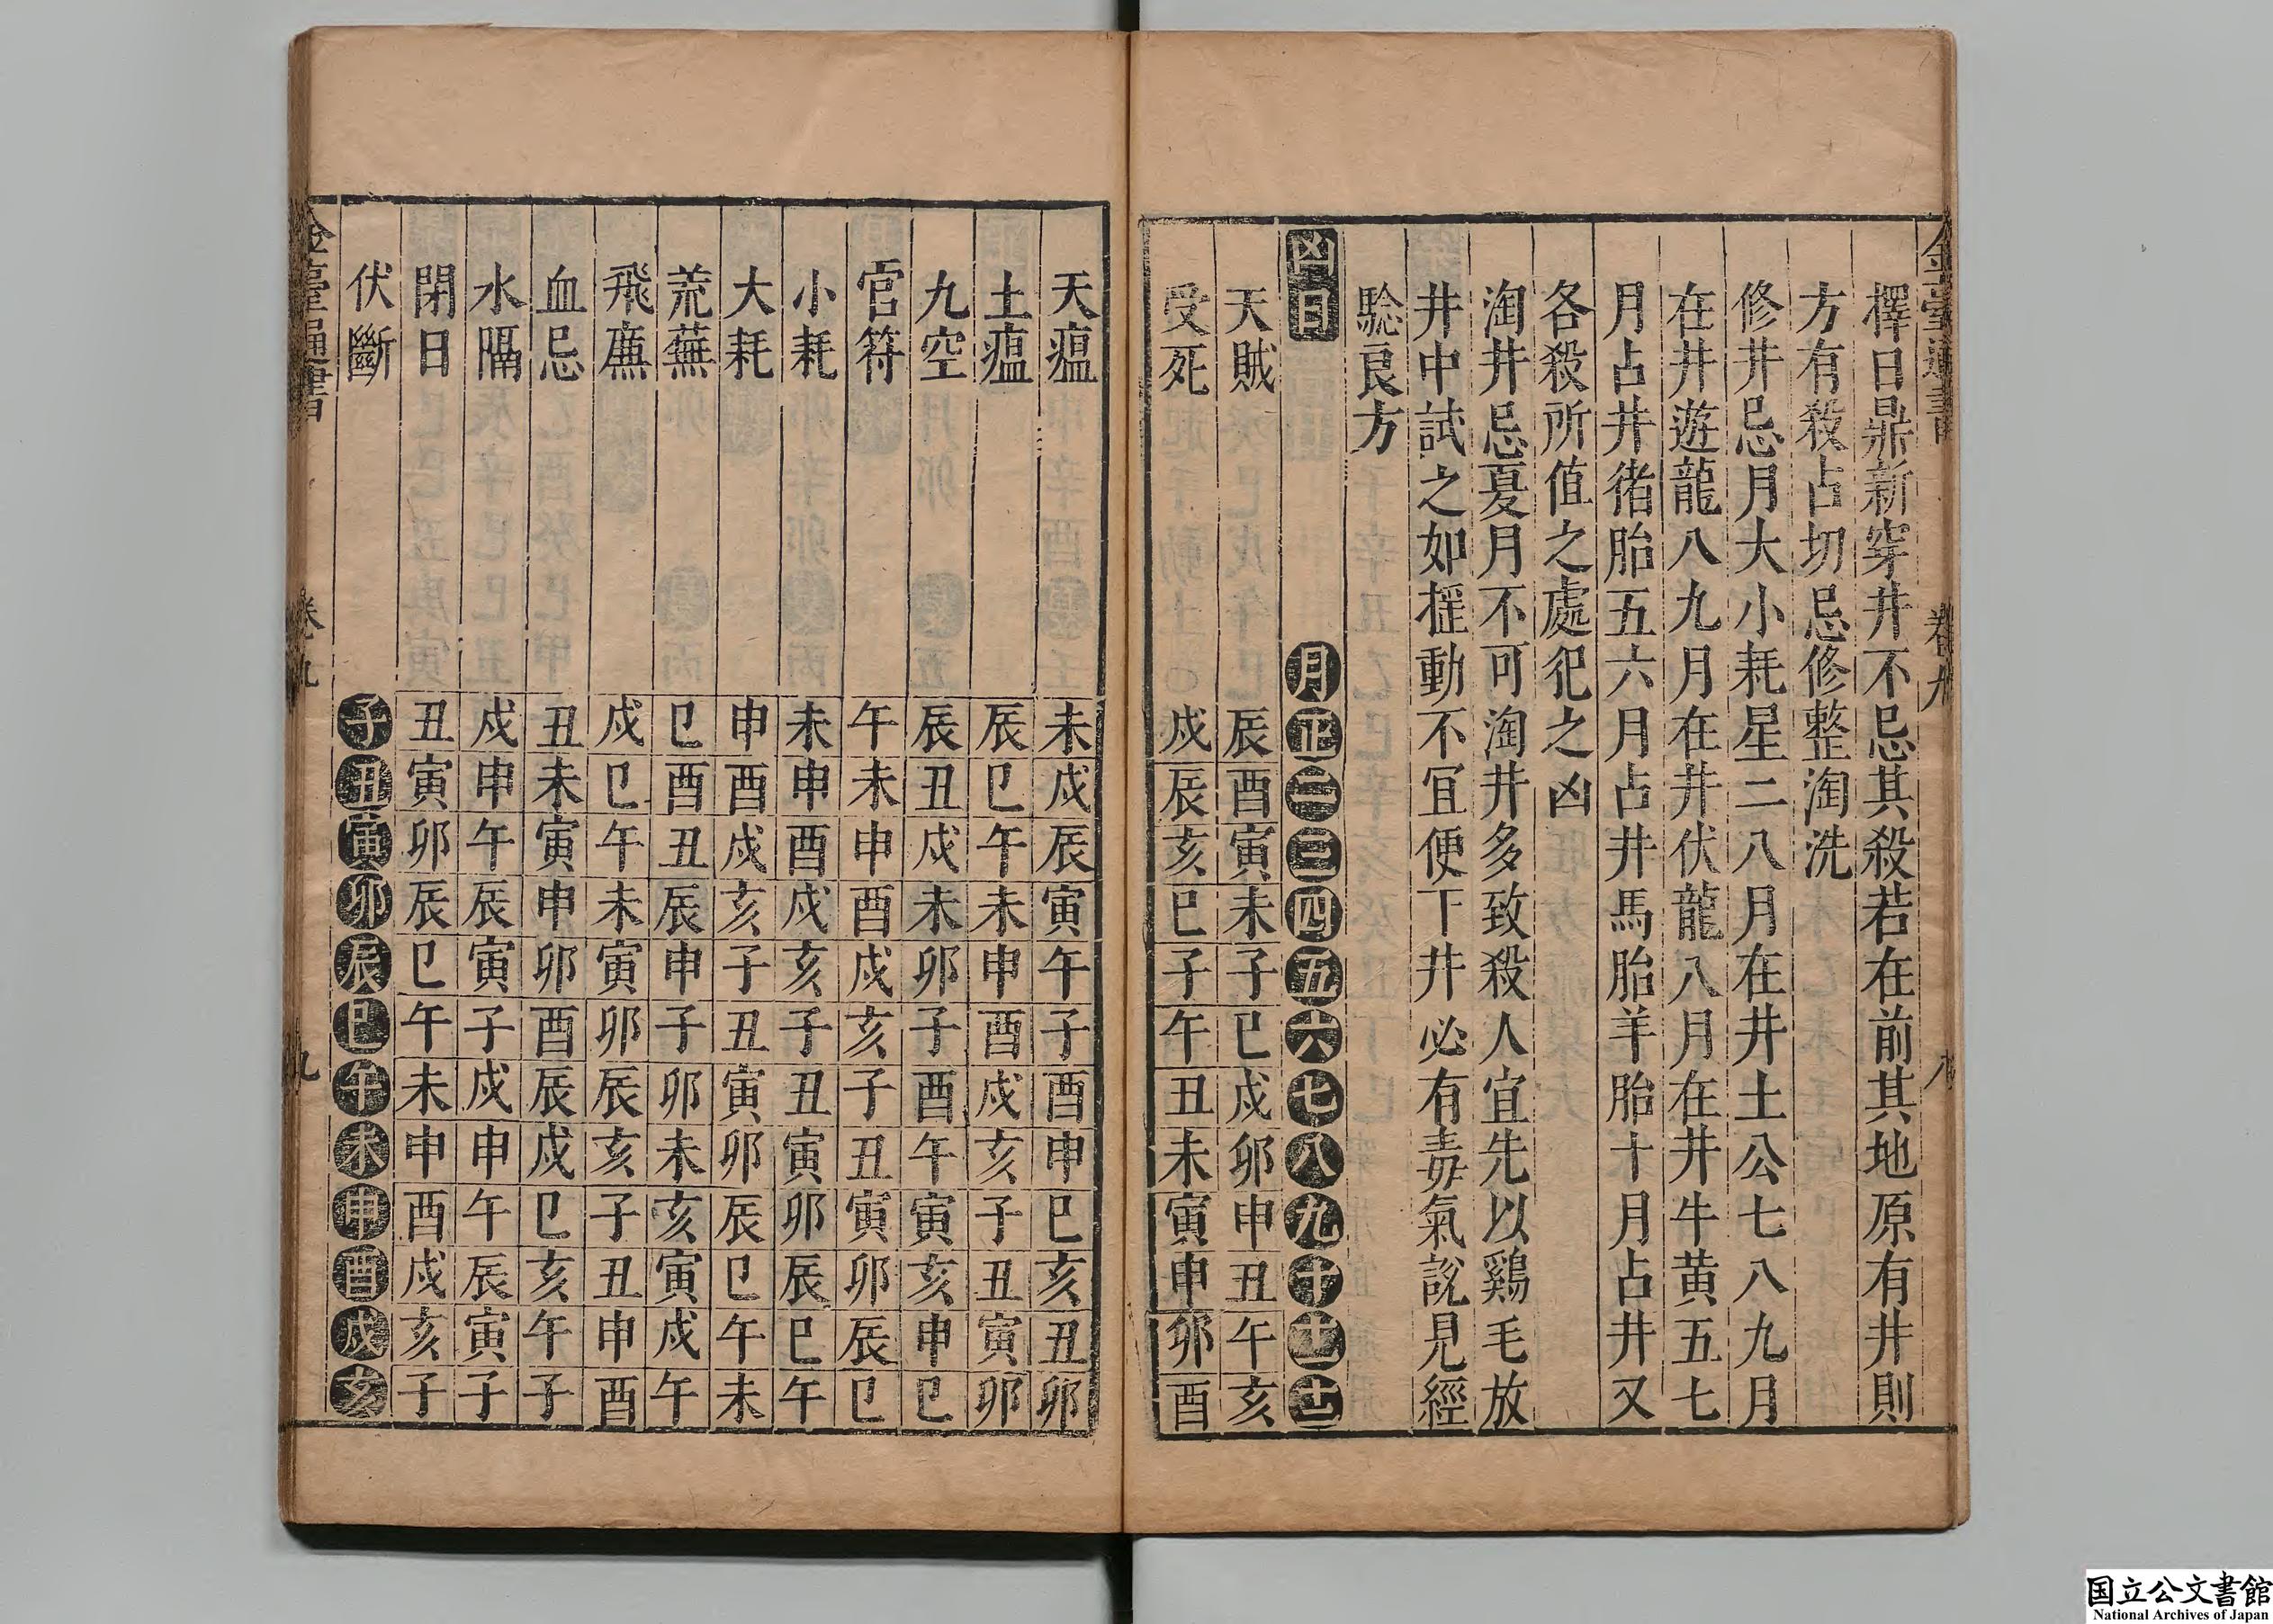 金臺通書　卷九　八
擇日鼎新穿井不忌其殺若在前其地原有井則
方有殺占切忌修整淘洗
修井忌月大小耗星二八月在井土公七八九月
在井遊龍八九月在井伏龍八月在井牛黃五七
月占井猪胎五六月占井馬胎羊胎十月占井又
各殺所值之處犯之凶
淘井忌夏月不可淘井多致殺人宜先以鷄毛放
井中試之如摇動不宜便下井必有毒氣說見經
騐良方
凶日　月正二三四五六七八九十十一十二
天賊　辰酉寅未子巳戌卯申丑午亥
受死　戌辰亥巳子午丑未寅申卯酉
天瘟　未戌辰寅午子酉申巳亥丑卯
土瘟　辰巳午未申酉戌亥子丑寅卯
九空　辰丑戌未卯子酉午寅亥申巳
官符　午未申酉戌亥子丑寅卯辰巳
小耗　未申酉戌亥子丑寅卯辰巳午
大耗　申酉戌亥子丑寅卯辰巳午未
荒蕪　巳酉丑辰申子卯未亥寅戌午
飛廉　戌巳午未寅卯辰亥子丑申酉
血忌　丑未寅申卯酉辰戌巳亥午子
水隔　戌申午辰寅子戌申午辰寅子
閉日　丑寅卯辰巳午未申酉戌亥子
伏斷　子丑寅卯辰巳午未申酉戌亥
金臺通書　卷九　九
国立公文書館
National Archives of Japan